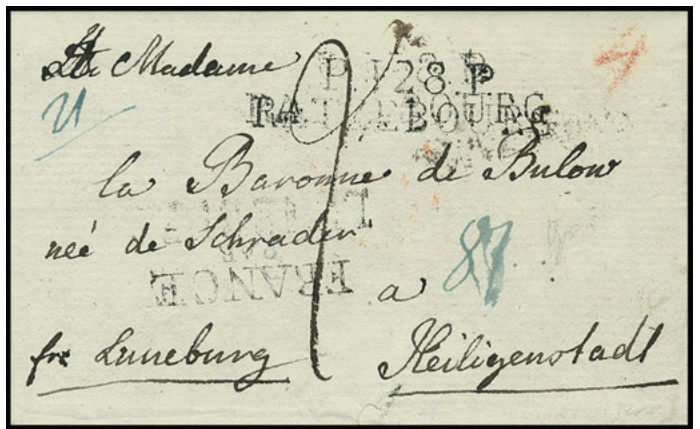 A Madame
P.128.P.
RATZEBOURG
la Baronne de Bulow
neé de Schrader
FRANCE
87
a
frc Luneburg
Heiligenstadt